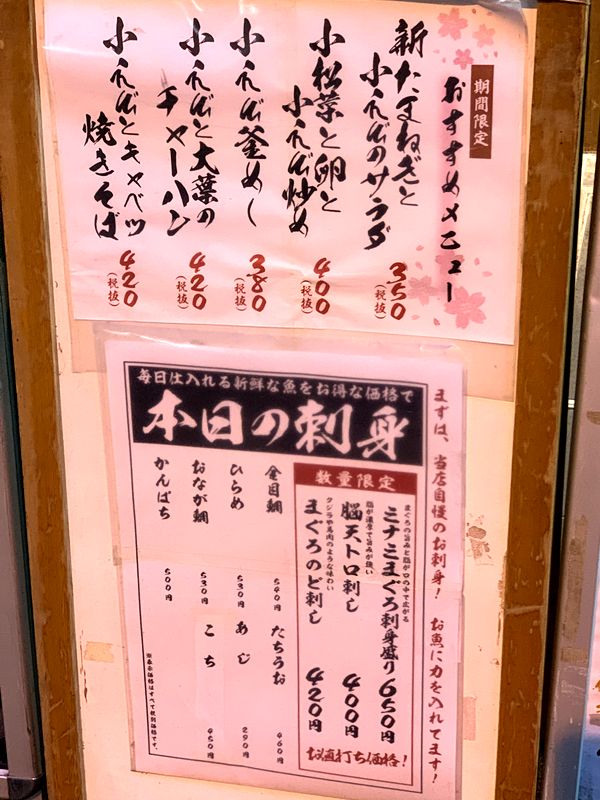 期間限定
おすすめメニュー
新たまねぎと
小えびのサラダ
350
(税抜)
小松菜と卵と
小えび炒め
400
(税抜)
小えび釜めし
380
(税抜)
小えびと大葉の
チャーハン
420
(税抜)
小えびとキャベツ
焼きそば
420
(税抜)
まずは、当店自慢のお刺身!お魚に力を入れてます!
毎日仕入れる新鮮な魚をお得な価格で
本日の刺身
数量限定
まぐろの旨みと脂が口の中で広がる
ミナミまぐろ刺身盛り 650円
脂が濃厚で旨みが強い
脳天トロ刺し 400円
クジラや馬肉のような味わい
まぐろのど刺し 420円
お値打ち価格!
金目鯛 540円
ひらめ 530円
おなが鯛 530円
かんぱち 500円
たちうお 460円
あじ 290円
こち 450円
※表示価格はすべて税別価格です。